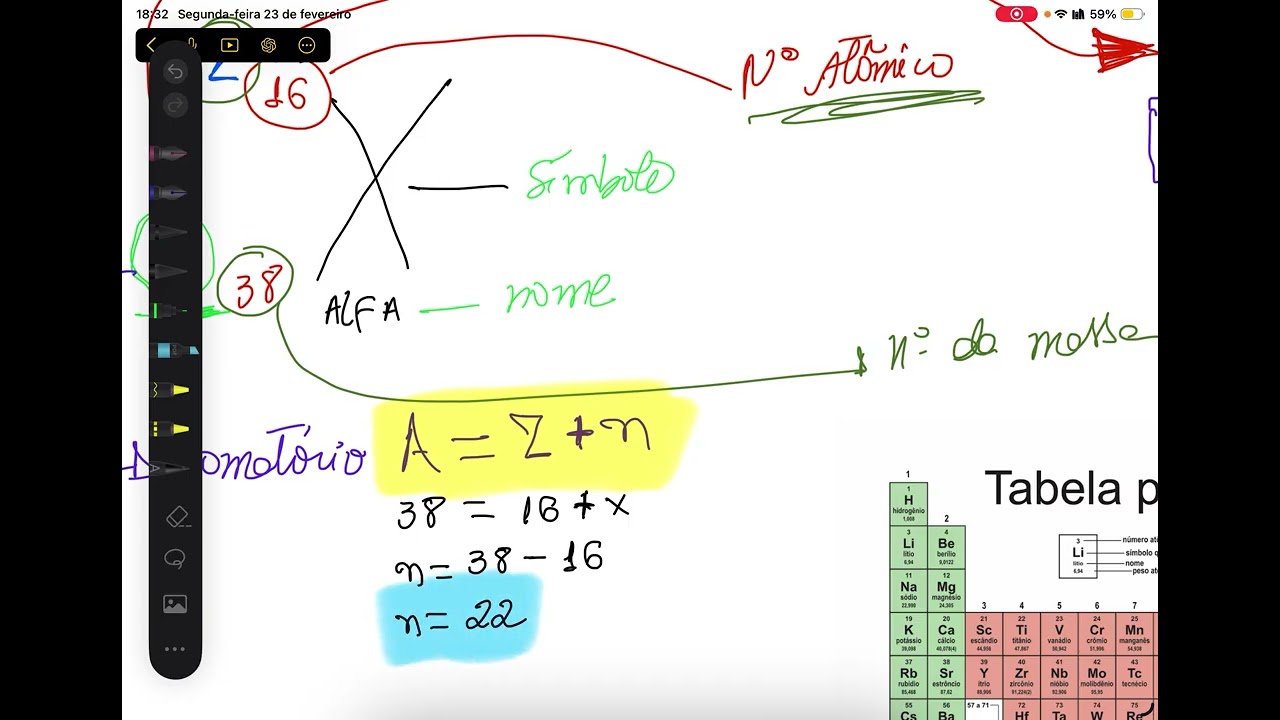 18:32 Segunda-feira 23 de fevereiro
59%
Z
16
Nº Atômico
Símbolo
38
ALFA
nome
nº de massa
A = Z + n
38 = 16 + x
n = 38 - 16
n = 22
Tabela p
1
1 H hidrogênio 1,008
2
3 Li lítio 6,94
4 Be berílio 9,0122
3 Li 6,94
número ató
símbolo q
nome
peso ató
11 Na sódio 22,990
12 Mg magnésio 24,305
3 4 5 6 7
19 K potássio 39,098
20 Ca cálcio 40,078(4)
21 Sc escândio 44,956
22 Ti titânio 47,867
23 V vanádio 50,942
24 Cr crômio 51,996
25 Mn manganês 54,938
37 Rb rubídio 85,468
38 Sr estrôncio 87,62
39 Y ítrio 88,906
40 Zr zircônio 91,224(2)
41 Nb nióbio 92,906
42 Mo molibdênio 95,95
43 Tc tecnécio
55 Cs
56 Ba
57 a 71
72 Hf
73 Ta
74 W
75 Re